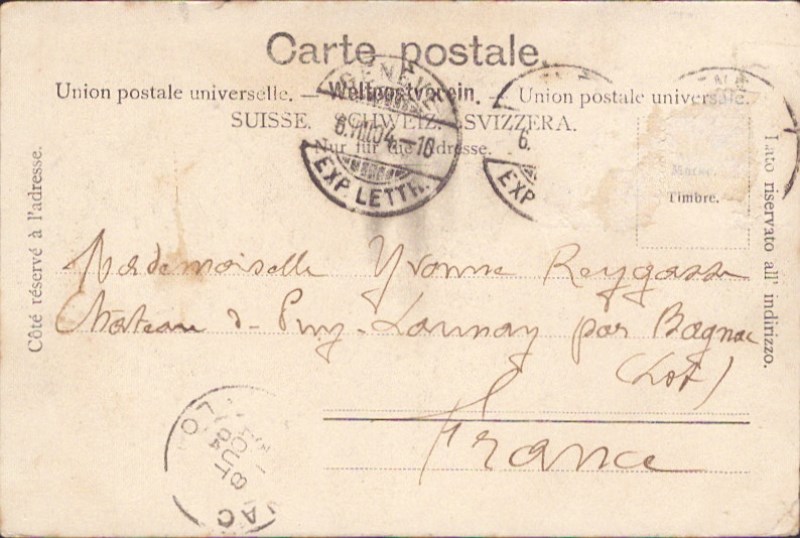 Carte postale.
Union postale universelle. — Weltpostverein. — Union postale universale.
SUISSE. SCHWEIZ. SVIZZERA.
Nur für die Adresse.
Côté réservé à l'adresse.
Lato riservato all' indirizzo.
Marke.
Timbre.
GENÈVE
6.VIII.04.-10
EXP. LETTR.
6.
EXP
Mademoiselle Yvonne Reygasse
Château d- Puy-Launay par Bagnac
(Lot)
France
LO
8
AOUT
04
NAC